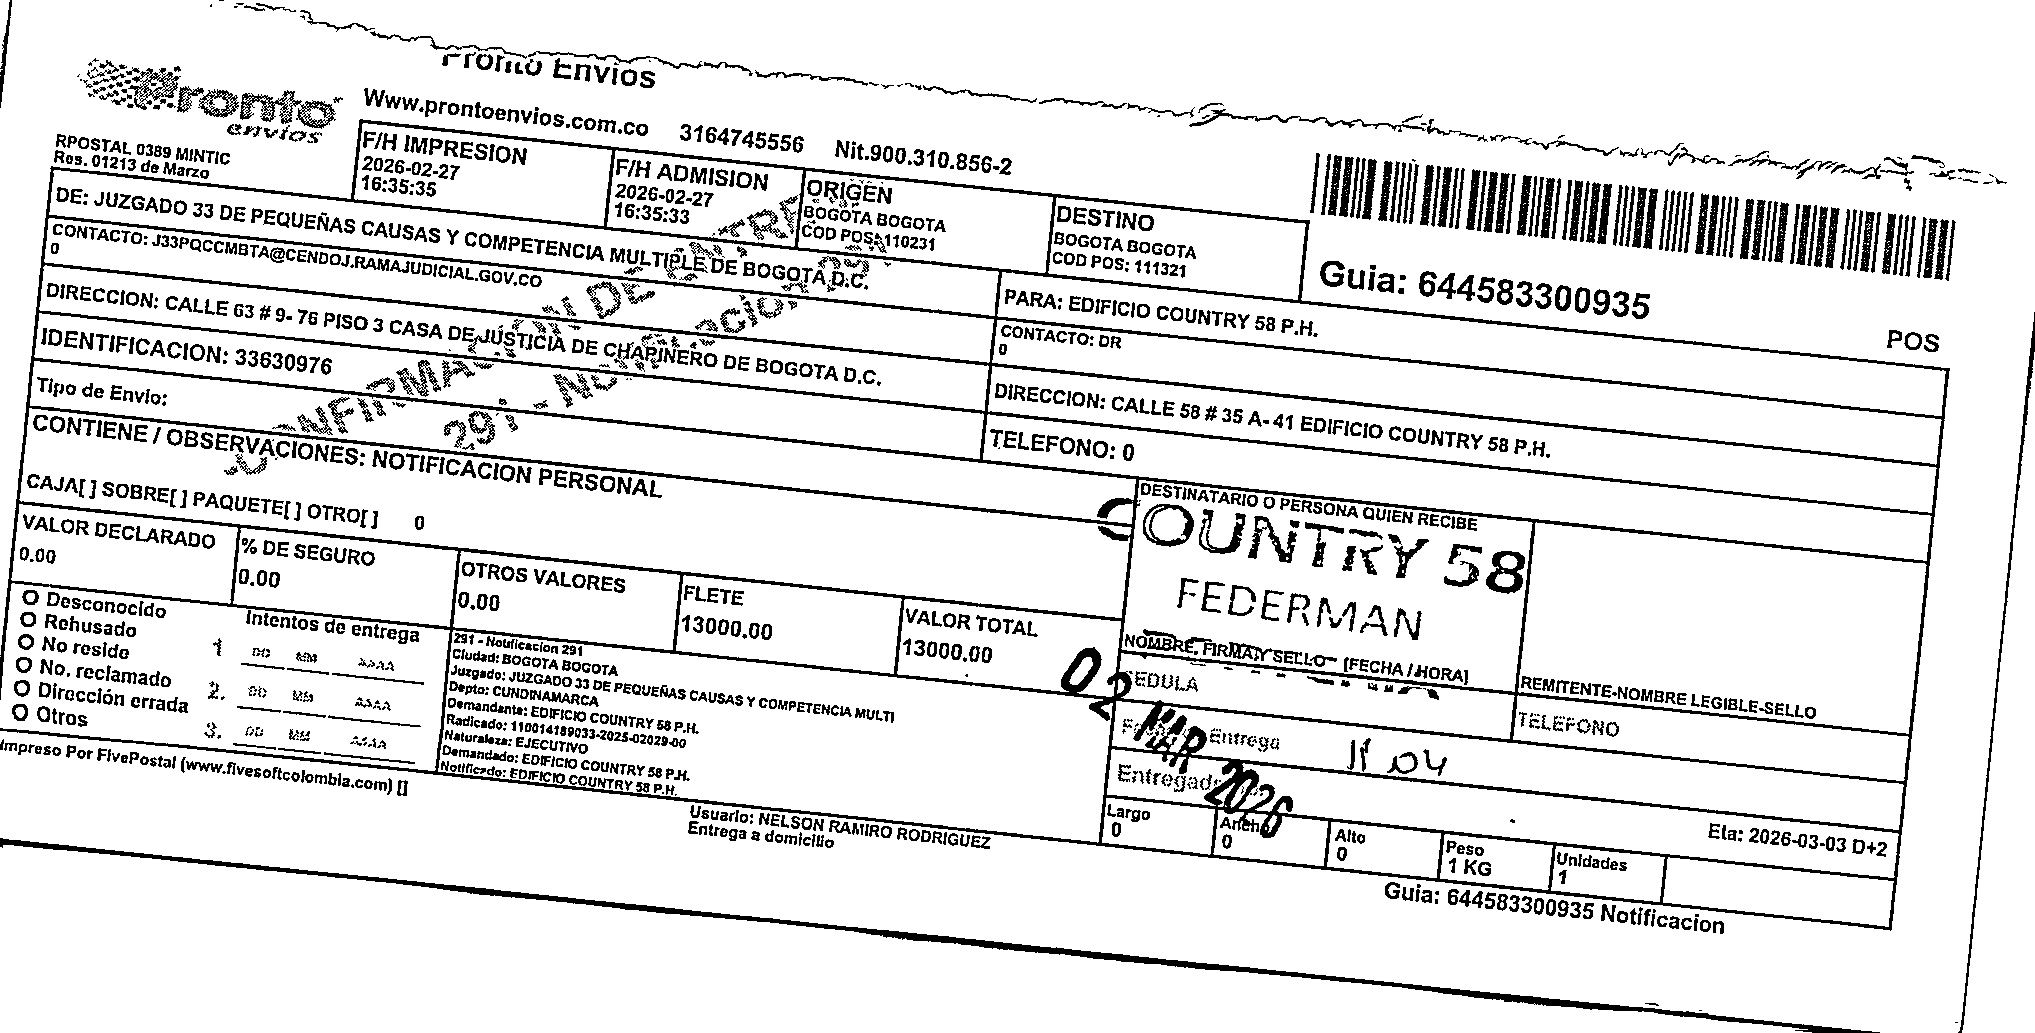 Pronto Envios
Pronto
envios
Www.prontoenvios.com.co 3164745556 Nit.900.310.856-2
RPOSTAL 0389 MINTIC
Res. 01213 de Marzo
F/H IMPRESION
2026-02-27
16:35:35
F/H ADMISION
2026-02-27
16:35:33
ORIGEN
BOGOTA BOGOTA
COD POS: 110231
DESTINO
BOGOTA BOGOTA
COD POS: 111321
Guia: 644583300935
POS
DE: JUZGADO 33 DE PEQUEÑAS CAUSAS Y COMPETENCIA MULTIPLE DE BOGOTA D.C.
CONTACTO: J33PQCCMBTA@CENDOJ.RAMAJUDICIAL.GOV.CO
0
DIRECCION: CALLE 63 # 9- 76 PISO 3 CASA DE JUSTICIA DE CHAPINERO DE BOGOTA D.C.
IDENTIFICACION: 33630976
Tipo de Envio:
PARA: EDIFICIO COUNTRY 58 P.H.
CONTACTO: DR
0
DIRECCION: CALLE 58 # 35 A- 41 EDIFICIO COUNTRY 58 P.H.
TELEFONO: 0
CONTIENE / OBSERVACIONES: NOTIFICACION PERSONAL
CAJA[ ] SOBRE[ ] PAQUETE[ ] OTRO[ ] 0
VALOR DECLARADO
0.00
% DE SEGURO
0.00
OTROS VALORES
0.00
FLETE
13000.00
VALOR TOTAL
13000.00
DESTINATARIO O PERSONA QUIEN RECIBE
COUNTRY 58
FEDERMAN
NOMBRE, FIRMA Y SELLO (FECHA / HORA)
CEDULA
02 MAR 2026
Entrega
11 04
Entregado
REMITENTE-NOMBRE LEGIBLE-SELLO
TELEFONO
O Desconocido
O Rehusado
O No reside
O No. reclamado
O Dirección errada
O Otros
Intentos de entrega
1 DD MM AAAA
2. DD MM AAAA
3. DD MM AAAA
291 - Notificacion 291
Ciudad: BOGOTA BOGOTA
Juzgado: JUZGADO 33 DE PEQUEÑAS CAUSAS Y COMPETENCIA MULTI
Depto: CUNDINAMARCA
Demandante: EDIFICIO COUNTRY 58 P.H.
Radicado: 110014189033-2025-02029-00
Naturaleza: EJECUTIVO
Demandado: EDIFICIO COUNTRY 58 P.H.
Notificado: EDIFICIO COUNTRY 58 P.H.
Largo
0
Ancho
0
Alto
0
Peso
1 KG
Unidades
1
Eta: 2026-03-03 D+2
Impreso Por FivePostal (www.fivesoftcolombia.com) []
Usuario: NELSON RAMIRO RODRIGUEZ
Entrega a domicilio
Guia: 644583300935 Notificacion